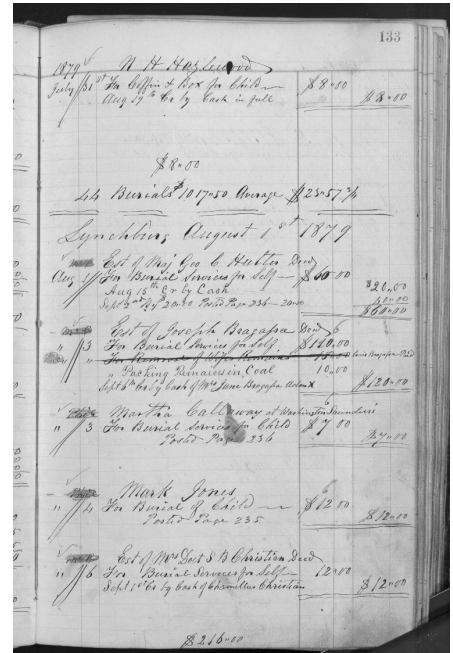 133
1879 N H Hazlewood
July 31st For Coffin & Box for Child $8.00
Aug 29th Cr by Cash in full $8.00
$8.00
44 Burials $1017.50 Average $23.57 3/4
Lynchburg August 1st 1879
Est of Maj Geo C Hutter Decd
Aug 1 For Burial Services for Self $60.00
Aug 15th Cr by Cash $20.00
Sept 3rd By 20.00 Posted Page 236 - 20.00 40.00
$60.00
Est of Joseph Bragassa Decd
" 3 For Burial Services for Self $110.00
" " For Removal of Remains
" Packing Remains in Coal 10.00
Sept 8th Cr by Cash of Mrs Jane Bragassa $120.00
Martha Callaway at Washington Saunders
" 3 For Burial Services for Child $7.00
Posted Page 236 $7.00
Mark Jones
" 4 For Burial of Child $12.00
Posted Page 235 $12.00
Est of Mrs Doct S B Christian Decd
" 6 For Burial Services for Self 12.00
Sept 1st Cr by Cash of Camillus Christian $12.00
$216.00